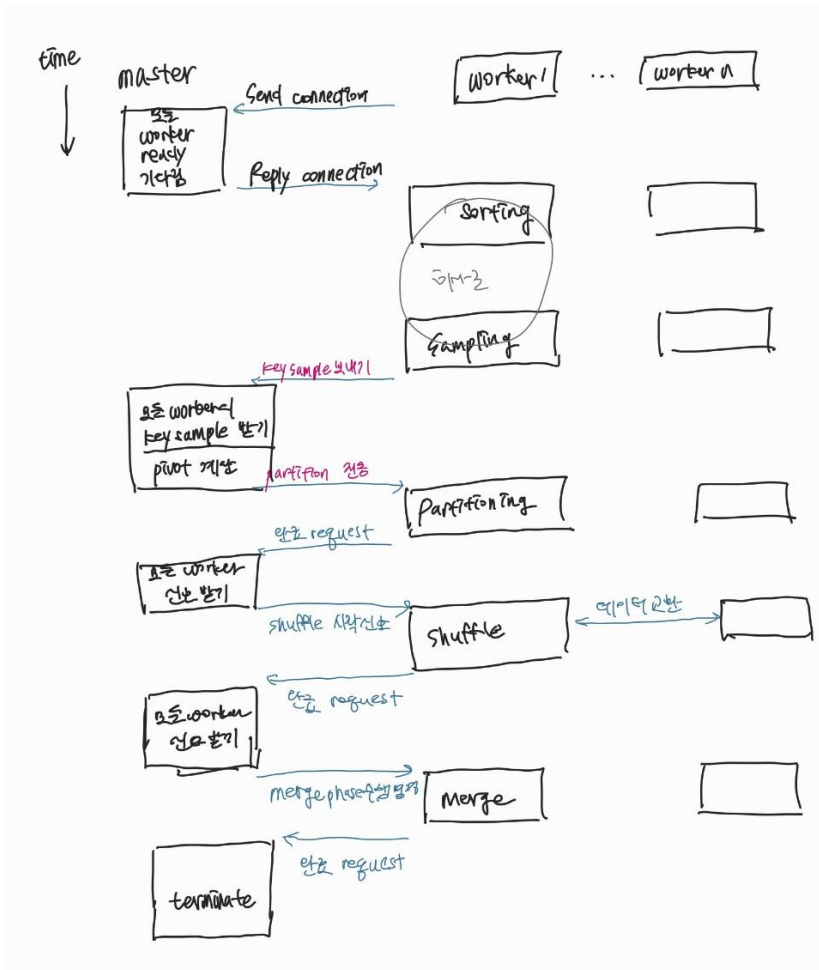 time
master
worker 1
...
worker n
Send connection
모든
worker
ready
기다림
Reply connection
Sorting
Sampling
key sample 보내기
모든 worker의
key sample 받기
pivot 계산
partition 전송
Partitioning
완료 request
모든 worker
신호 받기
shuffle 시작신호
shuffle
데이터 교환
완료 request
모든 worker
신호 받기
merge phase 수행 명령
Merge
완료 request
terminate